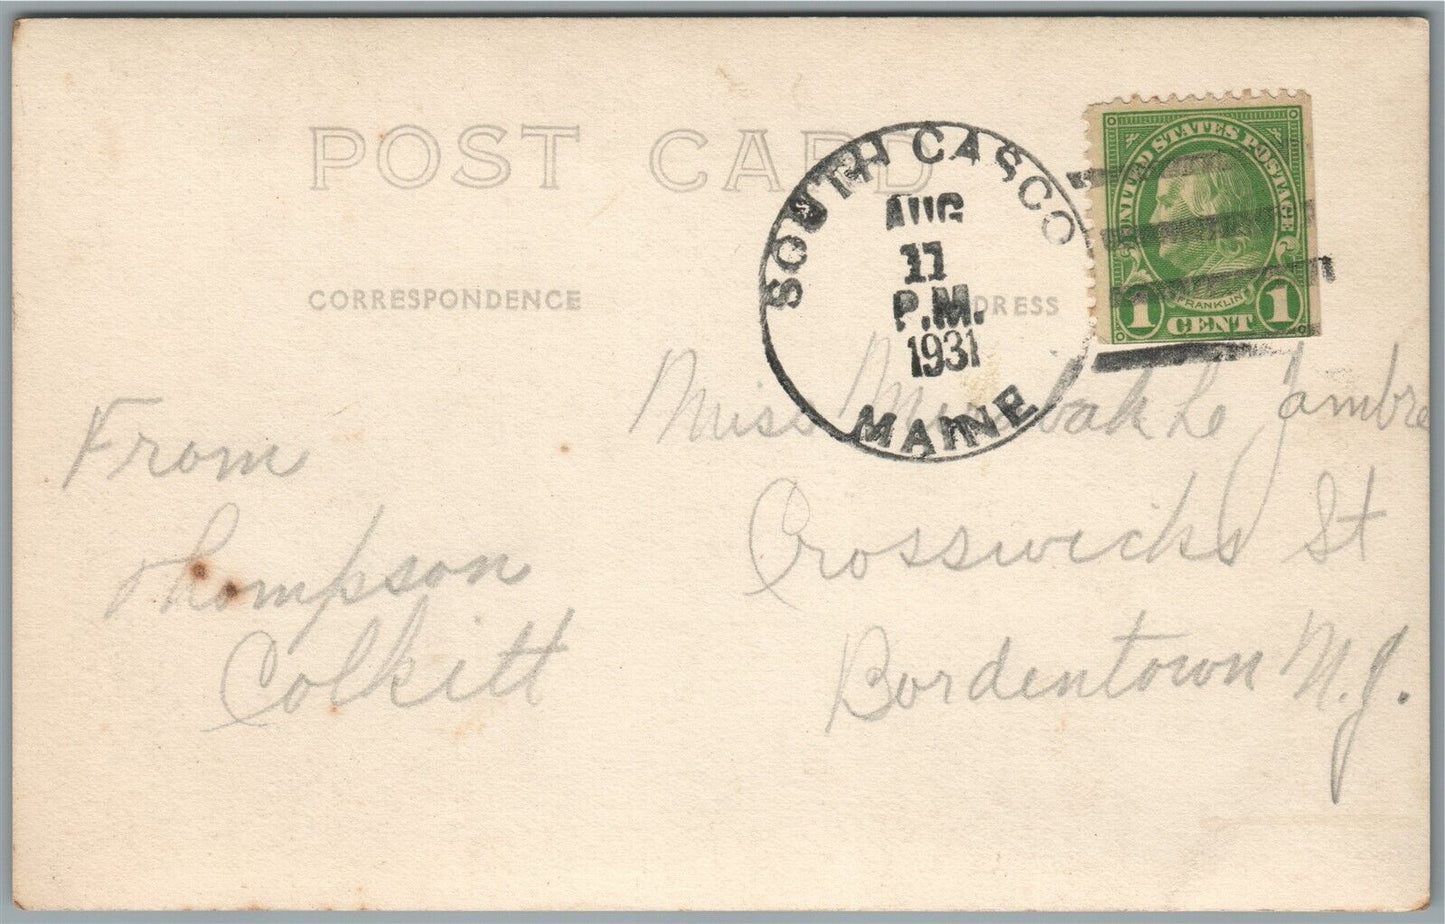 POST CARD
SOUTH CASCO
AUG
11
P.M.
1931
MAINE
UNITED STATES POSTAGE
FRANKLIN
1 CENT 1
CORRESPONDENCE
DRESS
From
Thompson
Colkitt
Miss Le Jambre
Crosswicks St
Bordentown N.J.